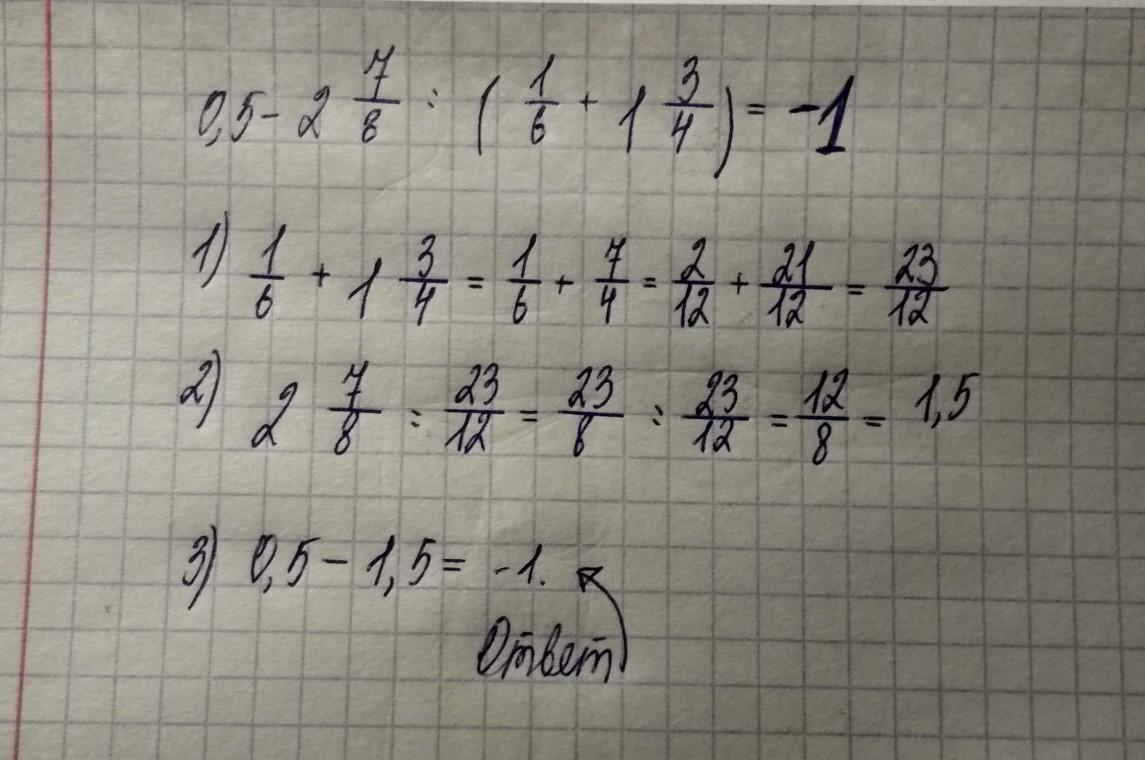 0,5 - 2 7/8 : ( 1/6 + 1 3/4 ) = -1
1) 1/6 + 1 3/4 = 1/6 + 7/4 = 2/12 + 21/12 = 23/12
2) 2 7/8 : 23/12 = 23/8 : 23/12 = 12/8 = 1,5
3) 0,5 - 1,5 = -1.
Ответ